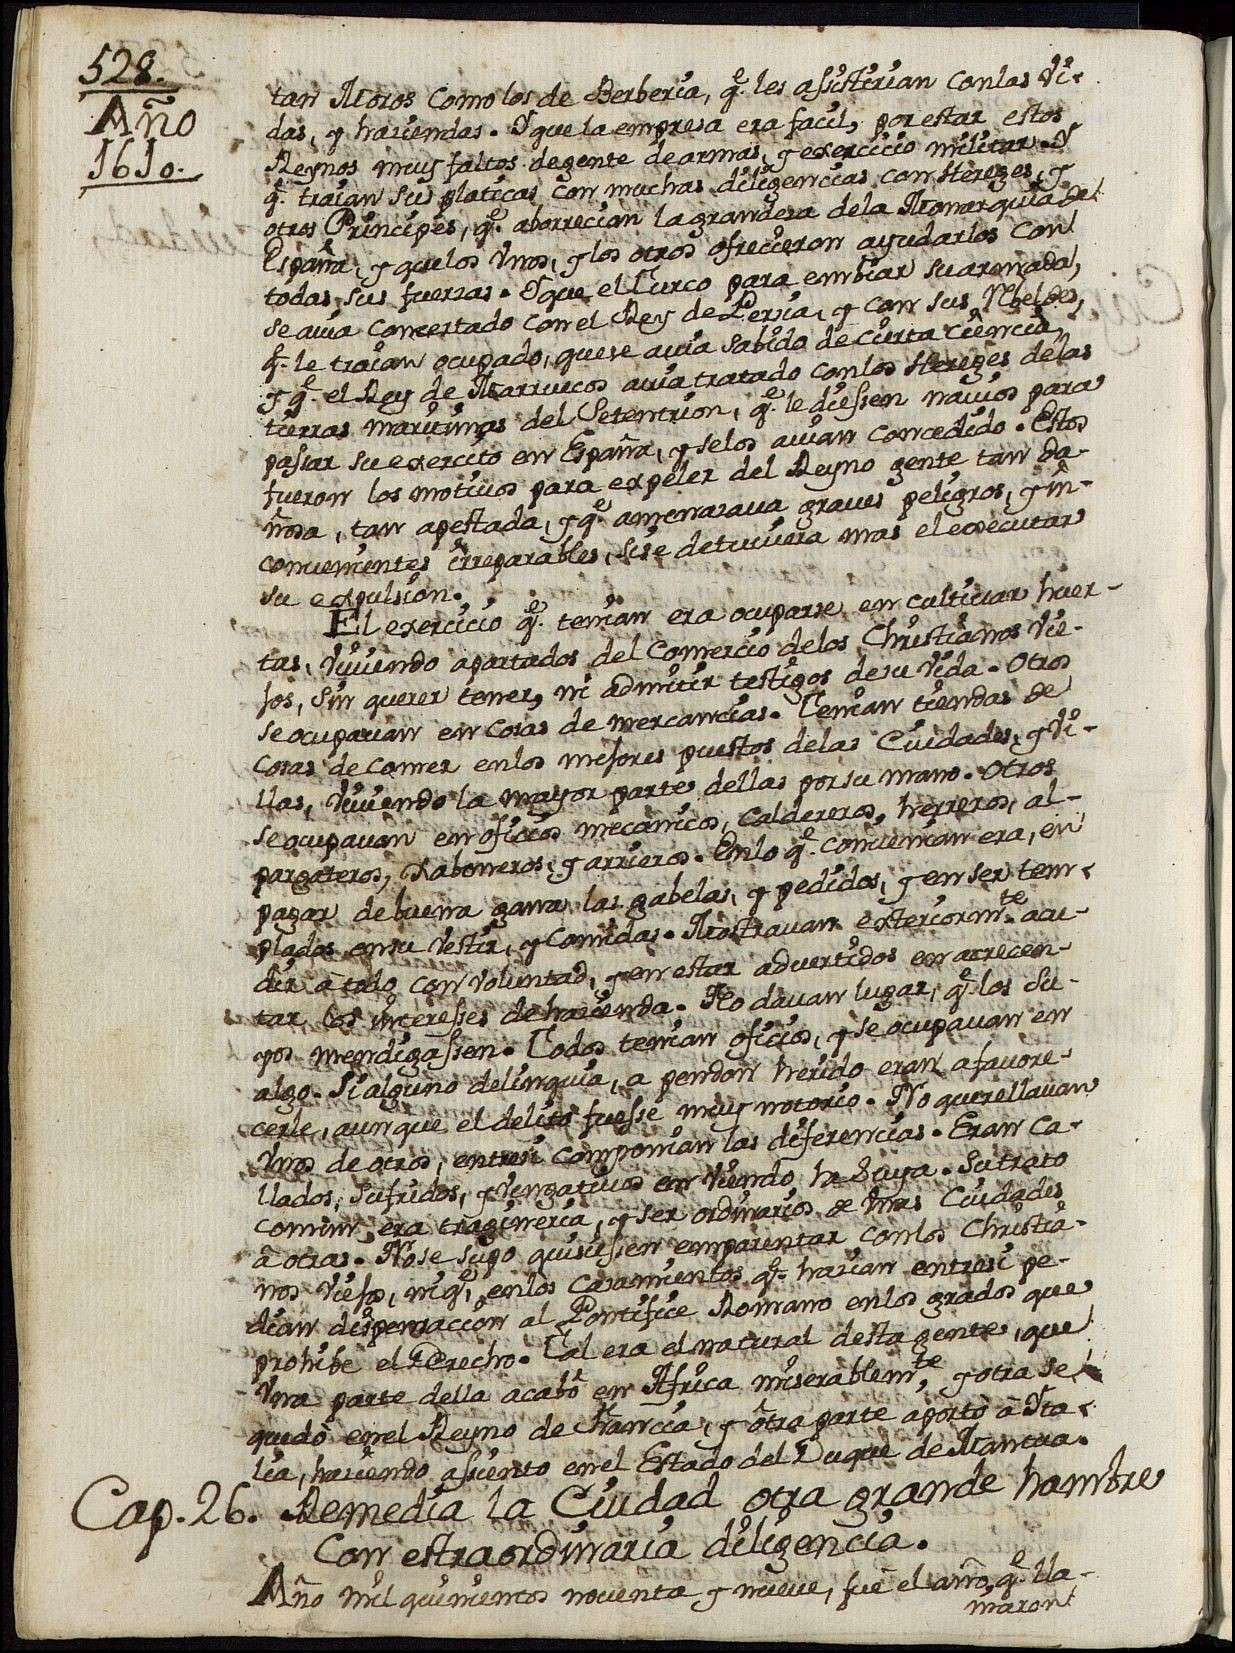 528.
Año
1610.
tan Moros como los de Berberia, q.e les assisterian con las Vi-
das, y haziendas. Y que la empresa era facil, por estar estos
Reynos muy faltos de gente de armas, y exercicio militar. Y
q.e traian sus platicas con muchas diligencias con Hereges, y
otros Principes, q.e aborrecian la grandeza dela Monarquia de
España, y que los Vnos, y los otros ofrecieron ayudarlos Con
todas sus fuerzas. Y que el Turco para embiar su armada,
se auia concertado con el Rey de Persia, y con sus Rebeldes,
q.e le traian ocupado, que se auia sabido de cierta ciencia,
y q.e el Rey de Marruecos auia tratado con los Hereges delas
tierras maritimas del Setentrion, q.e le diessen nauios para
passar su exercito en España, y se los auian concedido. Estos
fueron los motiuos para expeler del Reyno gente tan da-
ñosa, tan apestada, y q.e amenazaua graues peligros, y in-
conuenientes irreparables, si se detuuiera mas el executar
su expulsion.
El exercicio q.e tenian era ocuparse en cultiuar huer-
tas, Viuiendo apartados del Comercio delos Christianos Vie-
jos, sin querer tener, ni admitir testigos de su Vida. Otros
se ocupauan en cosas de mercancias. Tenian tiendas de
cosas de comer en los mejores puestos delas Ciudades, y Vi-
llas, Viuiendo la mayor parte dellas por su mano. Otros
se ocupauan en oficios mecanicos, Caldereros, herreros, al-
pargateros, Xaboneros, y arrieros. En lo q.e conuenian era, en
pagar de buena gana las gabelas, y pedidos, y en ser tem-
plados en su Vestir, y Comidas. Mostrauan exteriorm.te acu-
dir à todo con Voluntad, y en estar aduertidos en acrecen-
tar los interesses de hazienda. No dauan lugar, q.e los Su-
yos mendigassen. Todos tenian oficios, y se ocupauan en
algo. Si alguno delinquia, a pendon herido eran a fauore-
cerle, aunque el delito fuesse muy notorio. No querellauan
Vnos de otros, entre si componian las diferencias. Eran Ca-
llados, Sufridos, y Vengatiuos en Viendo la Suya. Su trato
comun, era tragineria, y ser ordinarios de Vnas Ciudades
à otras. No se supo quisiessen emparentar con los Christia-
nos Viejos, ni q.e en los Casamientos q.e hazian entre si pe-
dian dispensacion al Pontifice Romano en los grados que
prohibe el Derecho. Tal era el natural desta gente, que
Vna parte della acabò en Africa miserablem.te, y otra se
quedò en el Reyno de Francia, y otra parte aportò à Ita-
lia, haziendo assiento en el Estado del Duque de Mantua.
Cap. 26. Remedia la Ciudad otra grande hambre
Con estraordinaria diligencia.
Año mil quinientos nouenta y nueue, fue el año, q.e lla-
maron